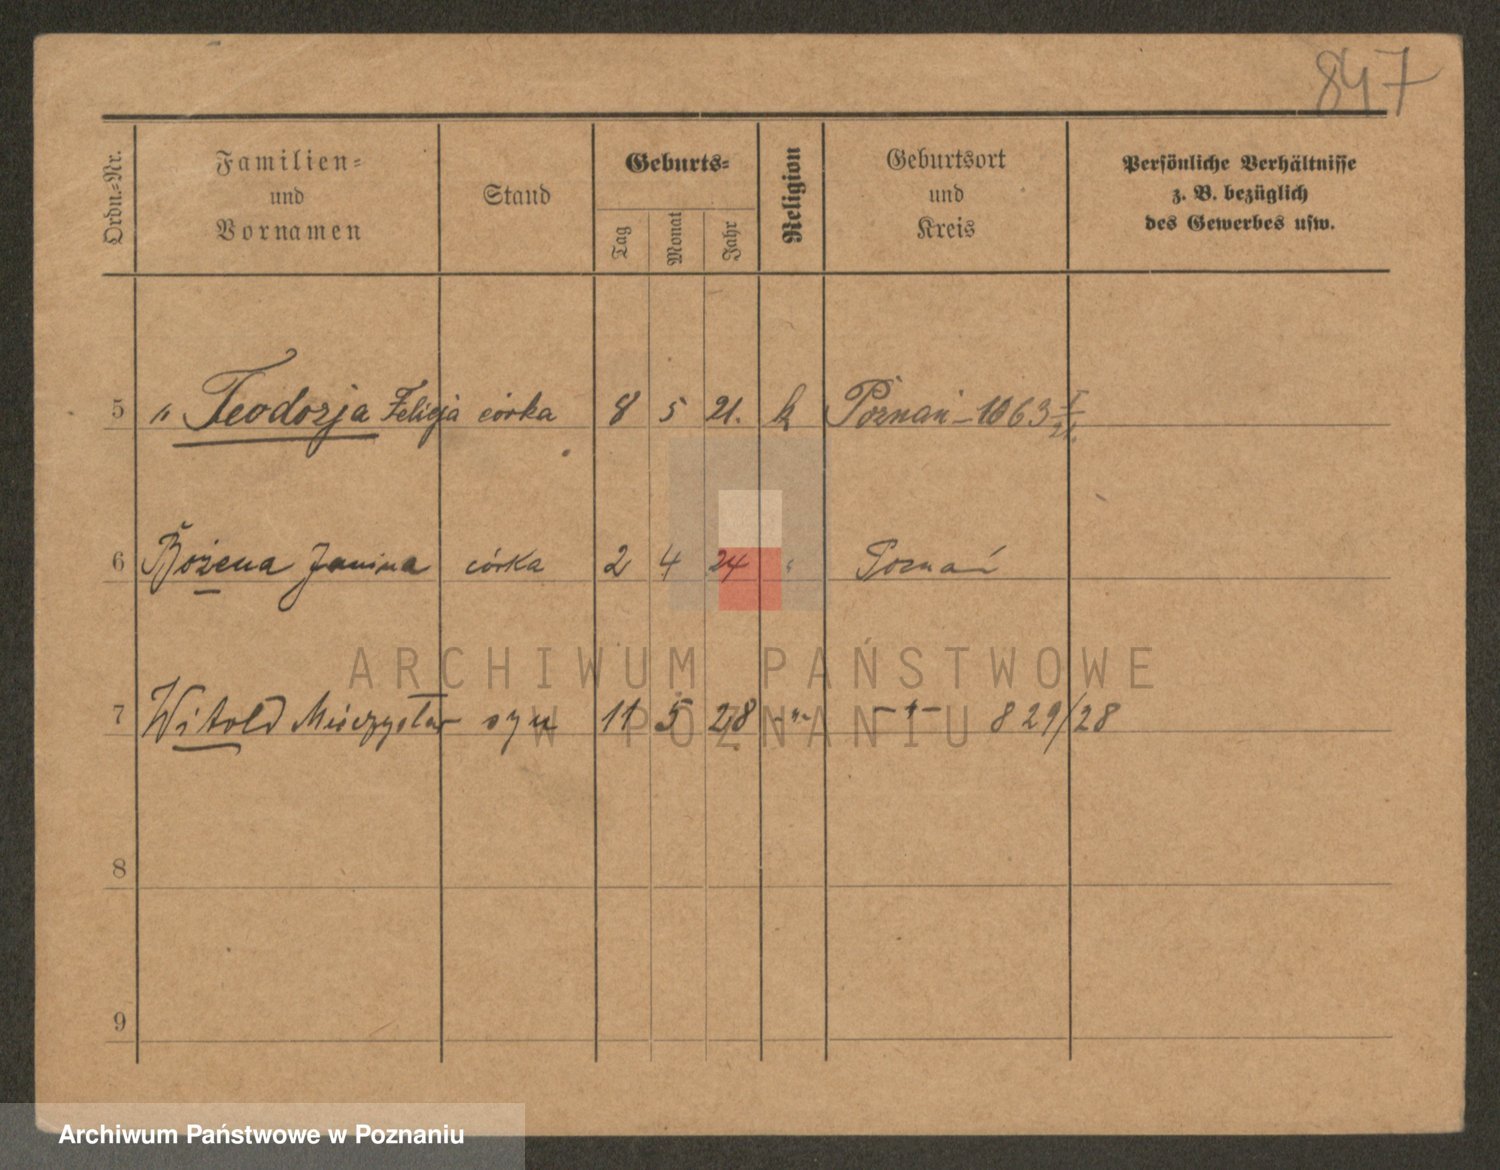 847
Ordn.-Nr.
Familien-
und
Vornamen
Stand
Geburts-
Tag
Monat
Jahr
Religion
Geburtsort
und
Kreis
Persönliche Verhältnisse
z. B. bezüglich
des Gewerbes usw.
5 " Teodozja Felicja córka 8 5 21. k Poznań - 1063 I/21.
6 Bożena Janina córka 2 4 24 " Poznań
ARCHIWUM PAŃSTWOWE
7 Witold Mieczysław syn 11 5 28 -"- -"- 829/28
W POZNANIU
8
9
Archiwum Państwowe w Poznaniu